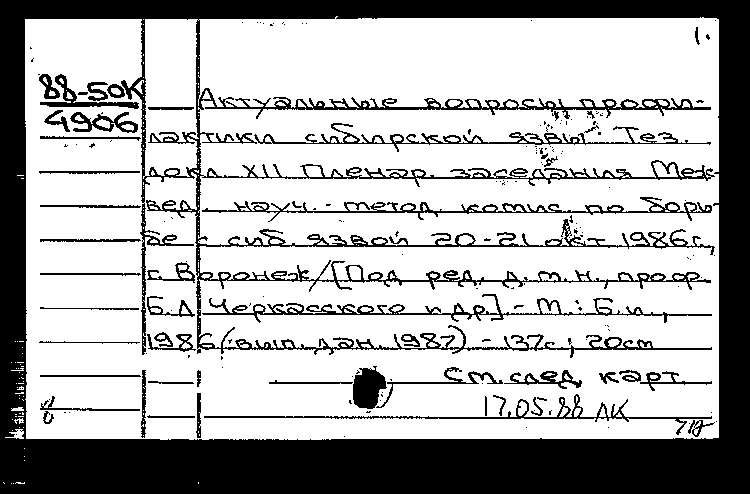 1.
88-50К
4906
Актуальные вопросы профи-
лактики сибирской язвы Тез.
докл. XII Пленар. заседания Меж-
вед. науч.-метод. комис. по борь-
бе с сиб. язвой 20-21 окт 1986г.,
г. Воронеж/[Под ред. д.м.н., проф.
Б.Л. Черкасского и др.] - М.: Б.и.,
1986 (:вып. дан. 1987) - 137с.; 20см
См. след. карт.
17.05.88 ЛК